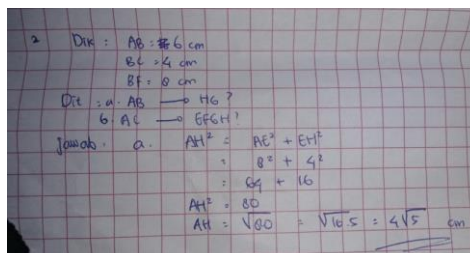 2 Dik : AB = 6 cm
BC = 4 cm
BF = 8 cm
Dit : a. AB → HG ?
b. AC → EFGH ?
Jawab. a. AH² = AE² + EH²
= 8² + 4²
= 64 + 16
AH² = 80
AH = √80 = √16.5 = 4√5 cm